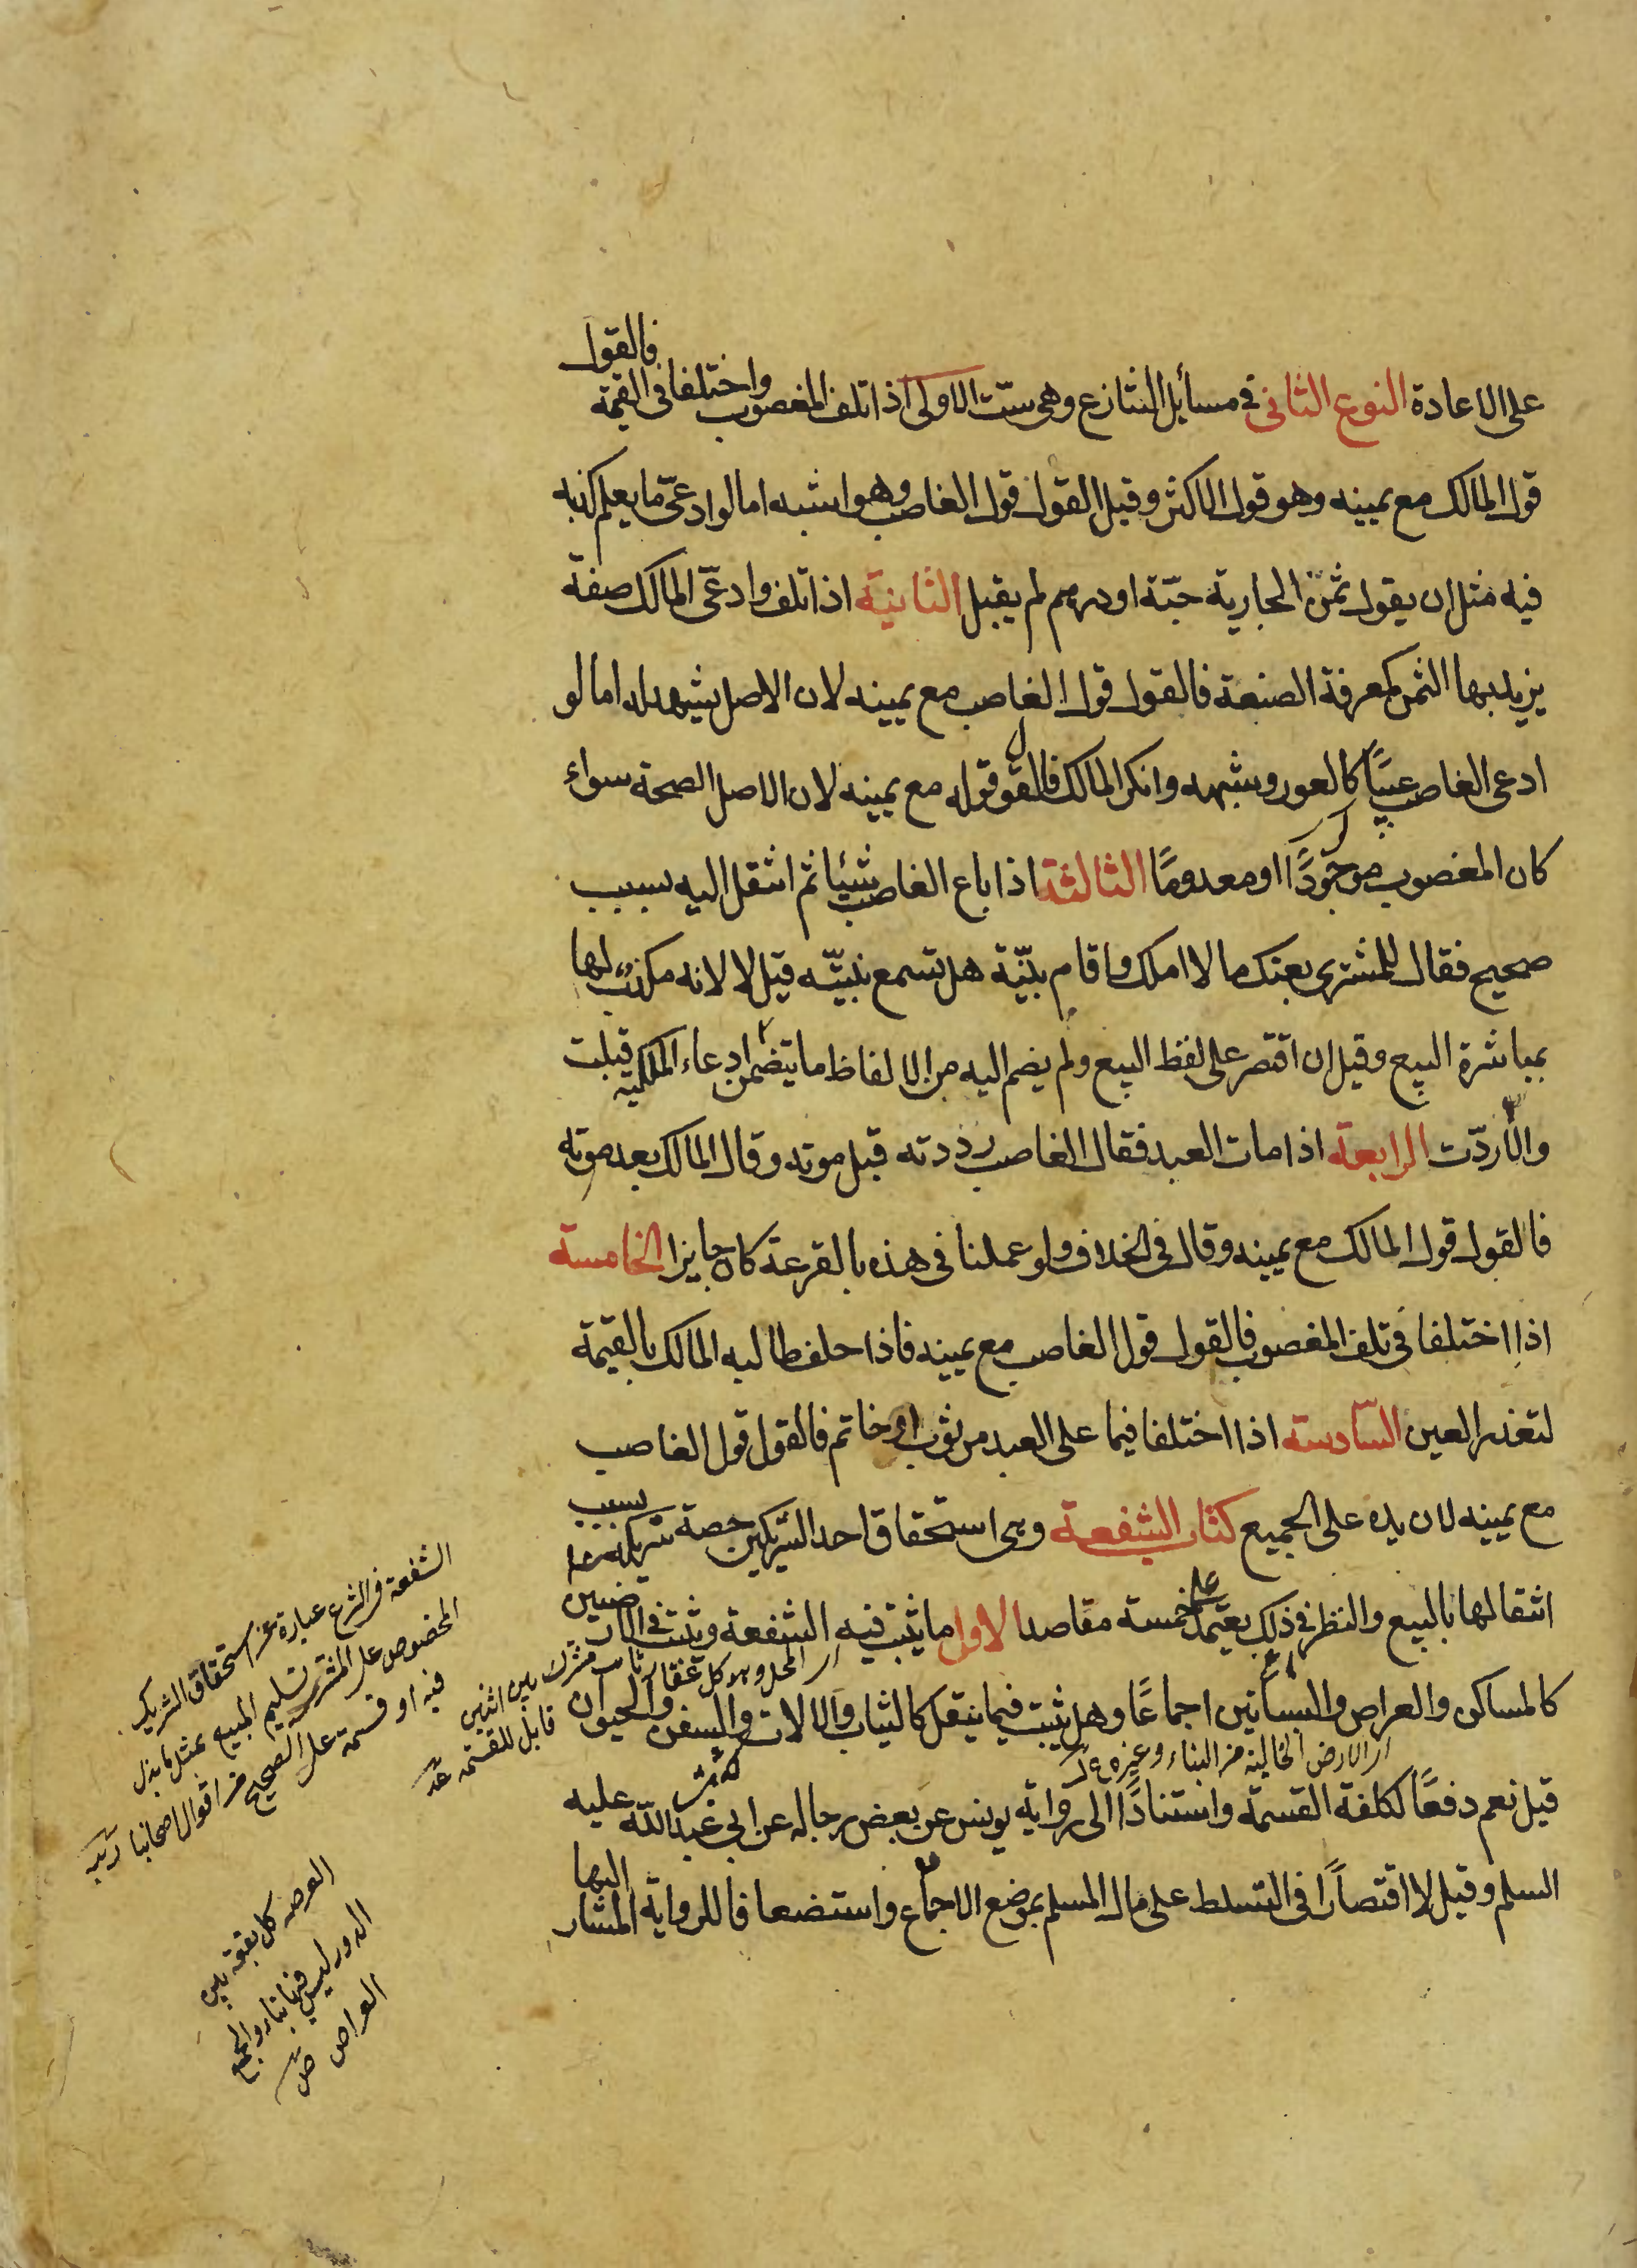 على الاعادة النوع الثانى فى مسائل التنازع وهى ستّ الاولى اذا تلف المغصوب واختلفا فى القيمة فالقول
قول المالك مع يمينه وهو قول الاكثر وقيل القول قول الغاصب وهو اشبه اما لو ادعىّ ما يعلم كذبه
فيه مثل ان يقول ثمن الجارية حبّة او درهم لم يقبل الثانية اذا تلف وادعّى المالك صفة
يزيد بها الثمن كمعرفة الصنعة فالقول قول الغاصب مع يمينه لان الاصل يشهد له اما لو
ادعى الغاصب عيبًا كالعور وشبهه وانكر المالك فالقول قوله مع يمينه لان الاصل الصحة سواء
كان المغصوب موجودًا او معدومًا الثالثة اذا باع الغاصب شيئا ثم انتقل اليه بسبب
صحيح فقال للمشترى بعتك ما لا املك واقام بيّنة هل تسمع بيّنته قيل لا لانه مكذب لها
بمباشرة البيع وقيل ان اقتصر على لفظ البيع ولم يضم اليه من الالفاظ ما يتضمن ادعاء الملكية قبلت
والا ردّت الرابعة اذا مات العبد فقال الغاصب رددته قبل موته وقال المالك بعد موته
فالقول قول المالك مع يمينه وقال فى الخلاف ولو عملنا فى هذه بالقرعة كان جايزا الخامسة
اذا اختلفا فى تلف المغصوب فالقول قول الغاصب مع يمينه فاذا حلف طالبه المالك بالقيمة
لتعذر العين السّادسة اذا اختلفا فيما على العبد من ثوب او خاتم فالقول قول الغاصب
مع يمينه لان يده على الجميع كتاب الشفعة وهى استحقاق احد الشريكين حصة شريكه بسبب
انتقالها بالبيع والنظر فى ذلك يعتمد على خمسة مقاصد الاول ما يثبت فيه الشفعة ويثبت فى الارضين
اى المحل وهو كل عقار ثابت مشترك بين اثنين قابل للقسمة
كالمساكن والعراص والبساتين اجماعًا وهل يثبت فيما ينقل كالثياب والالات والسفن والحيوان
اى الارض الخالية من البناء وغيره
قيل نعم دفعًا لكلفة القسمة واستنادًا الى رواية يونس عن بعض رجاله عن ابى عبد اللّه عليه
السلم وقيل لا اقتصارًا فى التسلط على مال المسلم بموضع الاجماع واستضعافا للرواية المشار اليها
الشفعة فى الشرع عبارة عن استحقاق الشريك
المخصوص على المشترى تسليم المبيع بمثل ما بذل
فيه او قسمة على الصحيح من اقوال اصحابنا
العرصة كل بقعة بين
الدور ليس فيها بناء والجمع
العراص